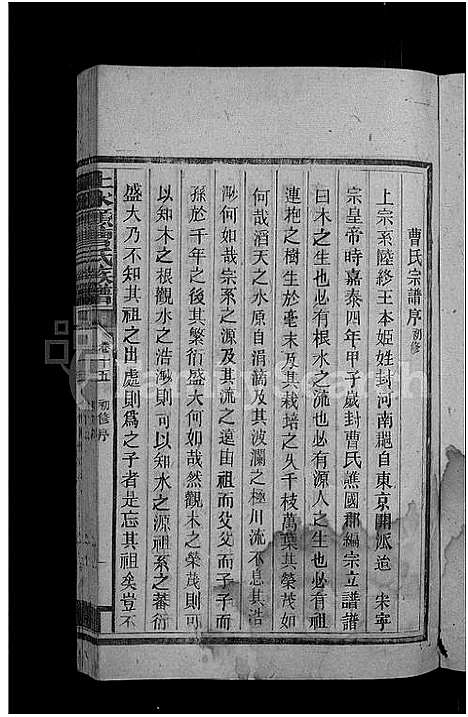 曹氏宗譜序初修
上宗系陸終王本姬姓封河南邑自東京開派迨 宋寧
宗皇帝時嘉泰四年甲子歲封曹氏譙國郡編宗立譜譜
曰木之生也必有根水之流也必有源人之生也必有祖
連抱之樹生於毫末及其栽培之久千枝萬葉其榮茂如
何哉滔天之水原自涓滴及其波瀾之極川流不息其浩
渺何如哉宗系之源及其流之遠由祖而父父而子子而
孫於千年之後其繁衍盛大何如哉然觀木之榮茂則可
以知木之根觀水之浩渺則可以知水之源祖系之蕃衍
盛大乃不知其祖之出處則為之子者是忘其祖矣豈不
上水源曹氏族譜
卷十五 初修序 一
FamilySearch